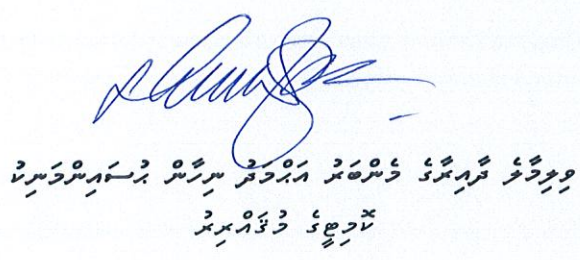 ވިލިމާލެ ދާއިރާގެ މެންބަރު އަޙްމަދު ނިހާން ޙުސައިންމަނިކު
ކޮމިޓީގެ މުޤައްރިރު